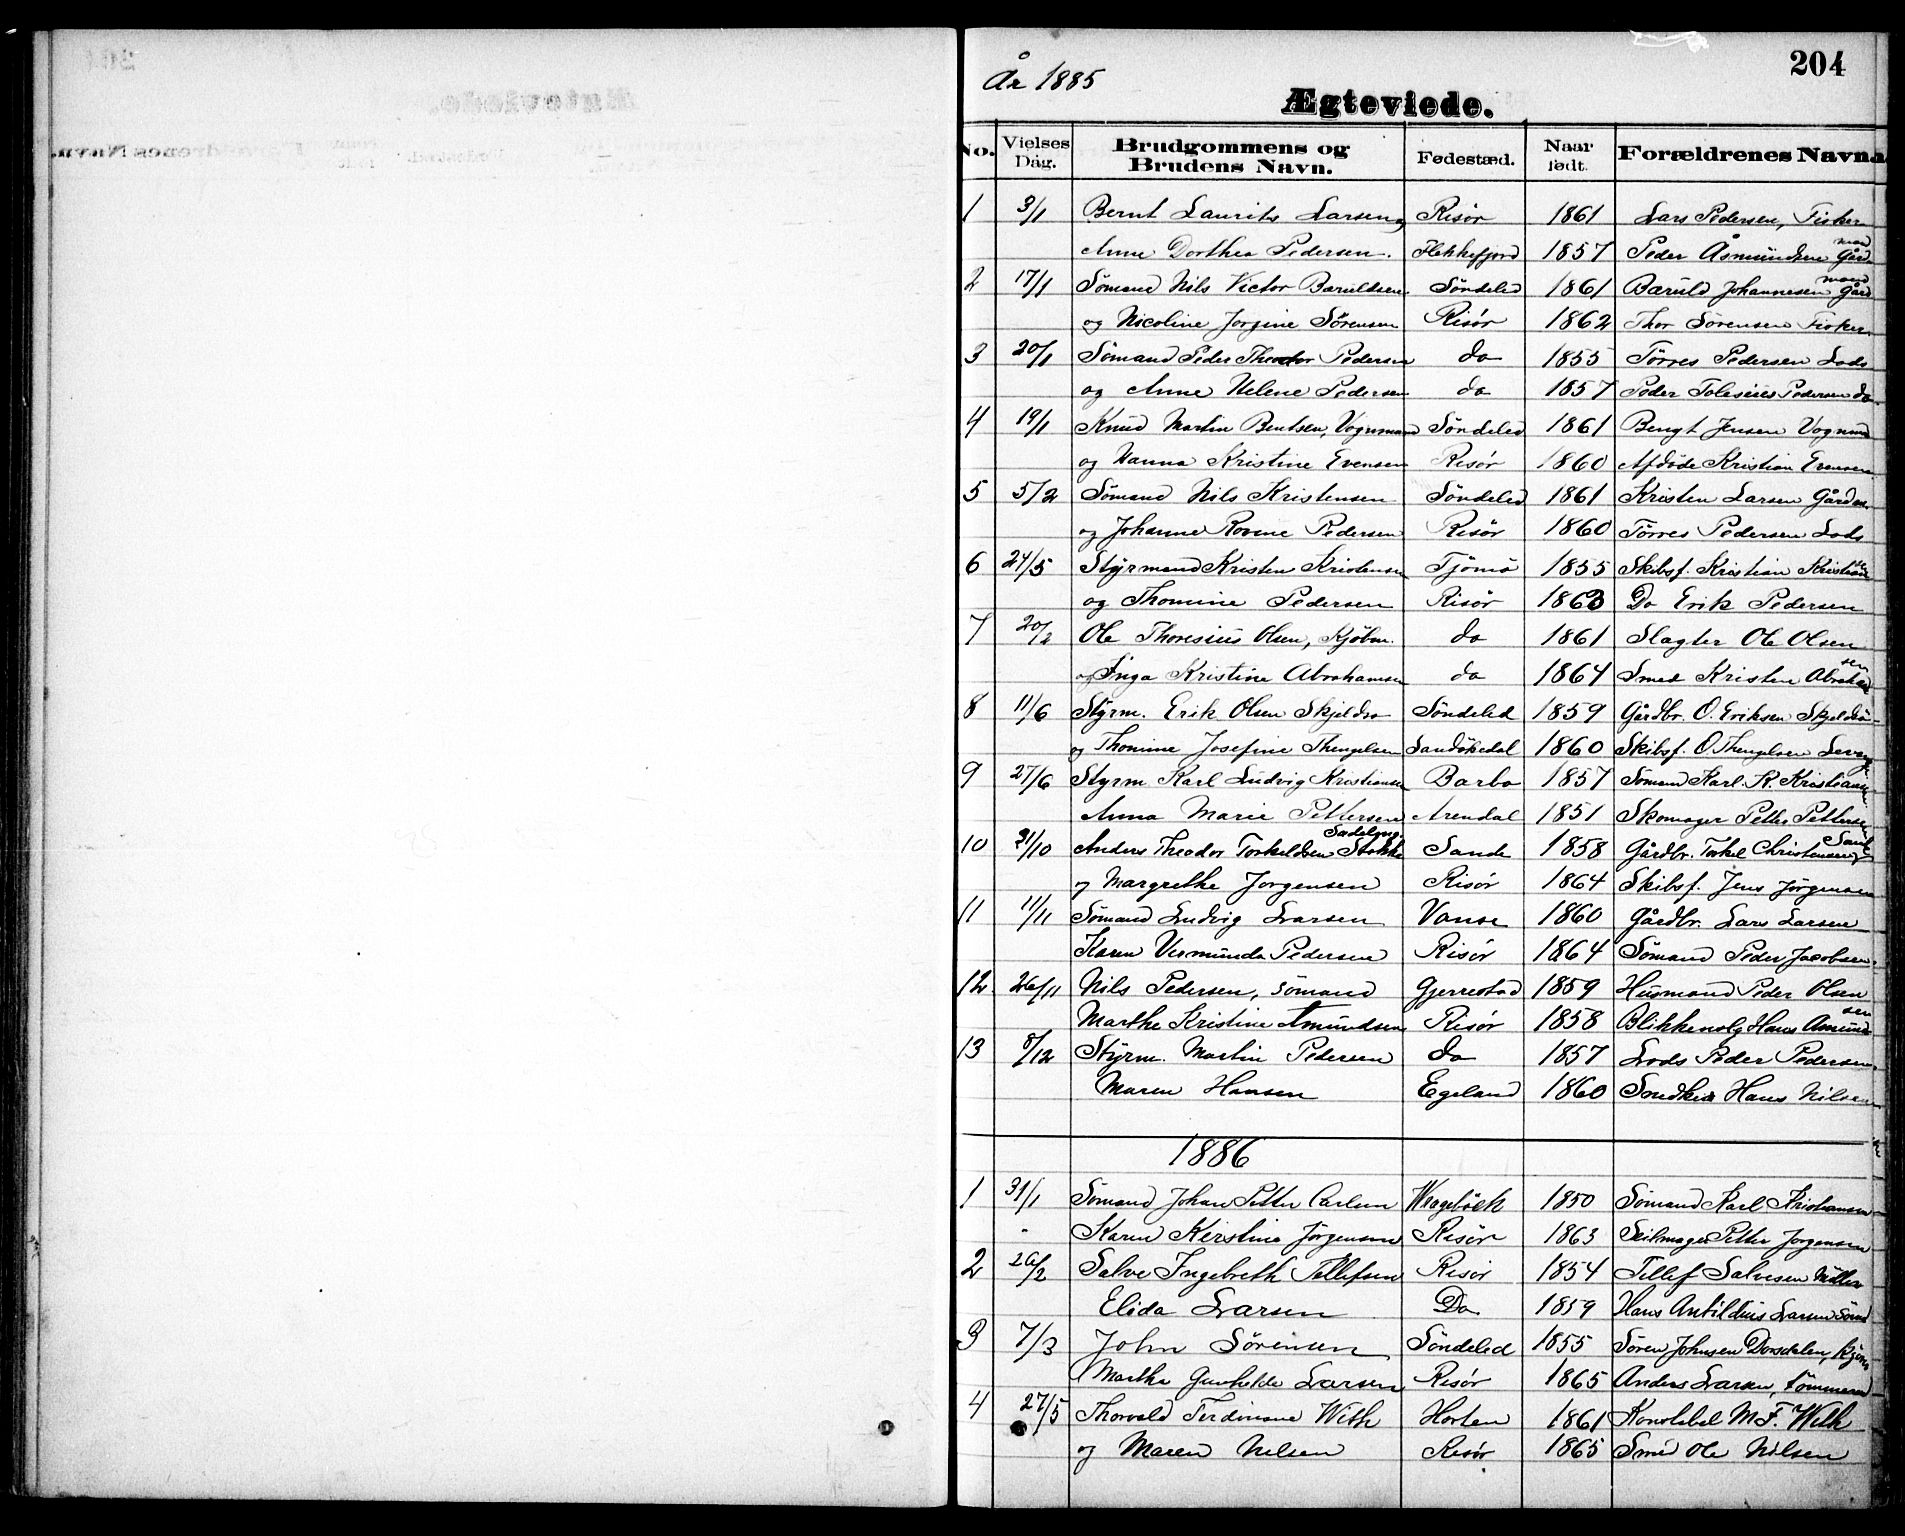 204
År 1885
Ægteviede.
No. Vielses Dag. Brudgommens og Brudens Navn. Fødested. Naar født. Forældrenes Navn.
1 3/1 Bernt Laurits Larsen, Risør 1861 Lars Pedersen, Fisker
Anne Dorthea Pedersen. Flekkefjord 1857 Peder Åsmundsen Gårdmand
2 17/1 Sömand Nils Victor Baruldsen Söndeled 1861 Baruld Johannesen Gårdmand
og Nicoline Jorgine Sörensen Risör 1862 Thor Sörensen Fisker
3 20/1 Sömand Peder Theodor Pedersen do 1855 Törres Pedersen Lods
og Anne Helene Pedersen do 1857 Peder Tolesius Pedersen do
4 19/1 Knud Martin Bentsen, Vognmand Söndeled 1861 Bengt Jensen Vognmd
og Hanna Kristine Evensen Risör 1860 Afdöde Kristian Evensen
5 5/2 Sömand Nils Kristensen Söndeled 1861 Kristen Larsen Gårdm
og Johanne Rovine Pedersen Risör 1860 Törres Pedersen Lods
6 24/5 Styrmand Kristen Kristensen Tjömö 1855 Skibsf. Kristian Kristiansen
og Thomine Pedersen Risör 1863 Do Erik Pedersen
7 20/2 Ole Thoresius Olsen, Kjöbm. do 1861 Slagter Ole Olsen
og Inga Kristine Abrahamsen do 1864 Smed Kristen Abrahamsen
8 11/6 Styrm. Erik Olsen Skjeldsö Söndeled 1859 Gårdbr. O. Eriksen Skjeldsö
og Thomine Josefine Thengelsen Sandökedal 1860 Skibsf. O Thengelsen
9 27/6 Styrm Karl Ludvig Kristiansen Barbo 1857 Sömand Karl. K. Kristiansen
Anna Marie Pettersen Arendal 1851 Skomager Petter Pettersen
10 31/10 Anders Theodor Torkeldsen Stokke Sadelmg. Sande 1858 Gårdbr. Torkel Christensen, Sande
og Margrethe Jorgensen Risör 1864 Skibsf. Jens Jörgensen
11 11/11 Sömand Ludvig Larsen Vanse 1860 Gårdbr. Lars Larsen
Karen Vermunda Pedersen Risör 1864 Sömand Peder Jacobsen
12 26/11 Nils Pedersen, sömand Gjerrestad 1859 Husmand Peder Olsen
Marthe Kristine Amundsen Risör 1858 Blikkenslg Hans Amundsen
13 8/12 Styrm. Martin Pedersen do 1857 Lods Peder Pedersen
Maren Hansen Egeland 1860 Snedker Hans Nilsen
1886
1 31/1 Sömand Johan Petter Carlsen 1850 Sömand Karl Kristiansen
- Karen Kirstine Jörgensen Risör 1863 Seilmager Petter Jorgensen
2 26/2 Salve Ingebreth Tellefsen Risör 1854 Tellef Salvesen Möller
Elida Larsen Do 1859 Hans Larsen Sömd
3 7/3 John Sörensen Söndeled 1855 Sören Johnsen Dorsdalen,
Martha Gunhilde Larsen Risör 1865 Anders Larsen, tömmerm
4 27/5 Thorvald Ferdinand With Horten 1861 Konstabel M F. With
og Maren Nilsen Risör 1865 Smed Ole Nilsen